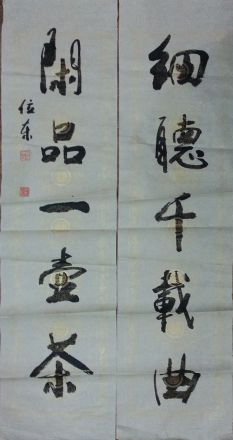 細聽千載曲
閑品一壺茶